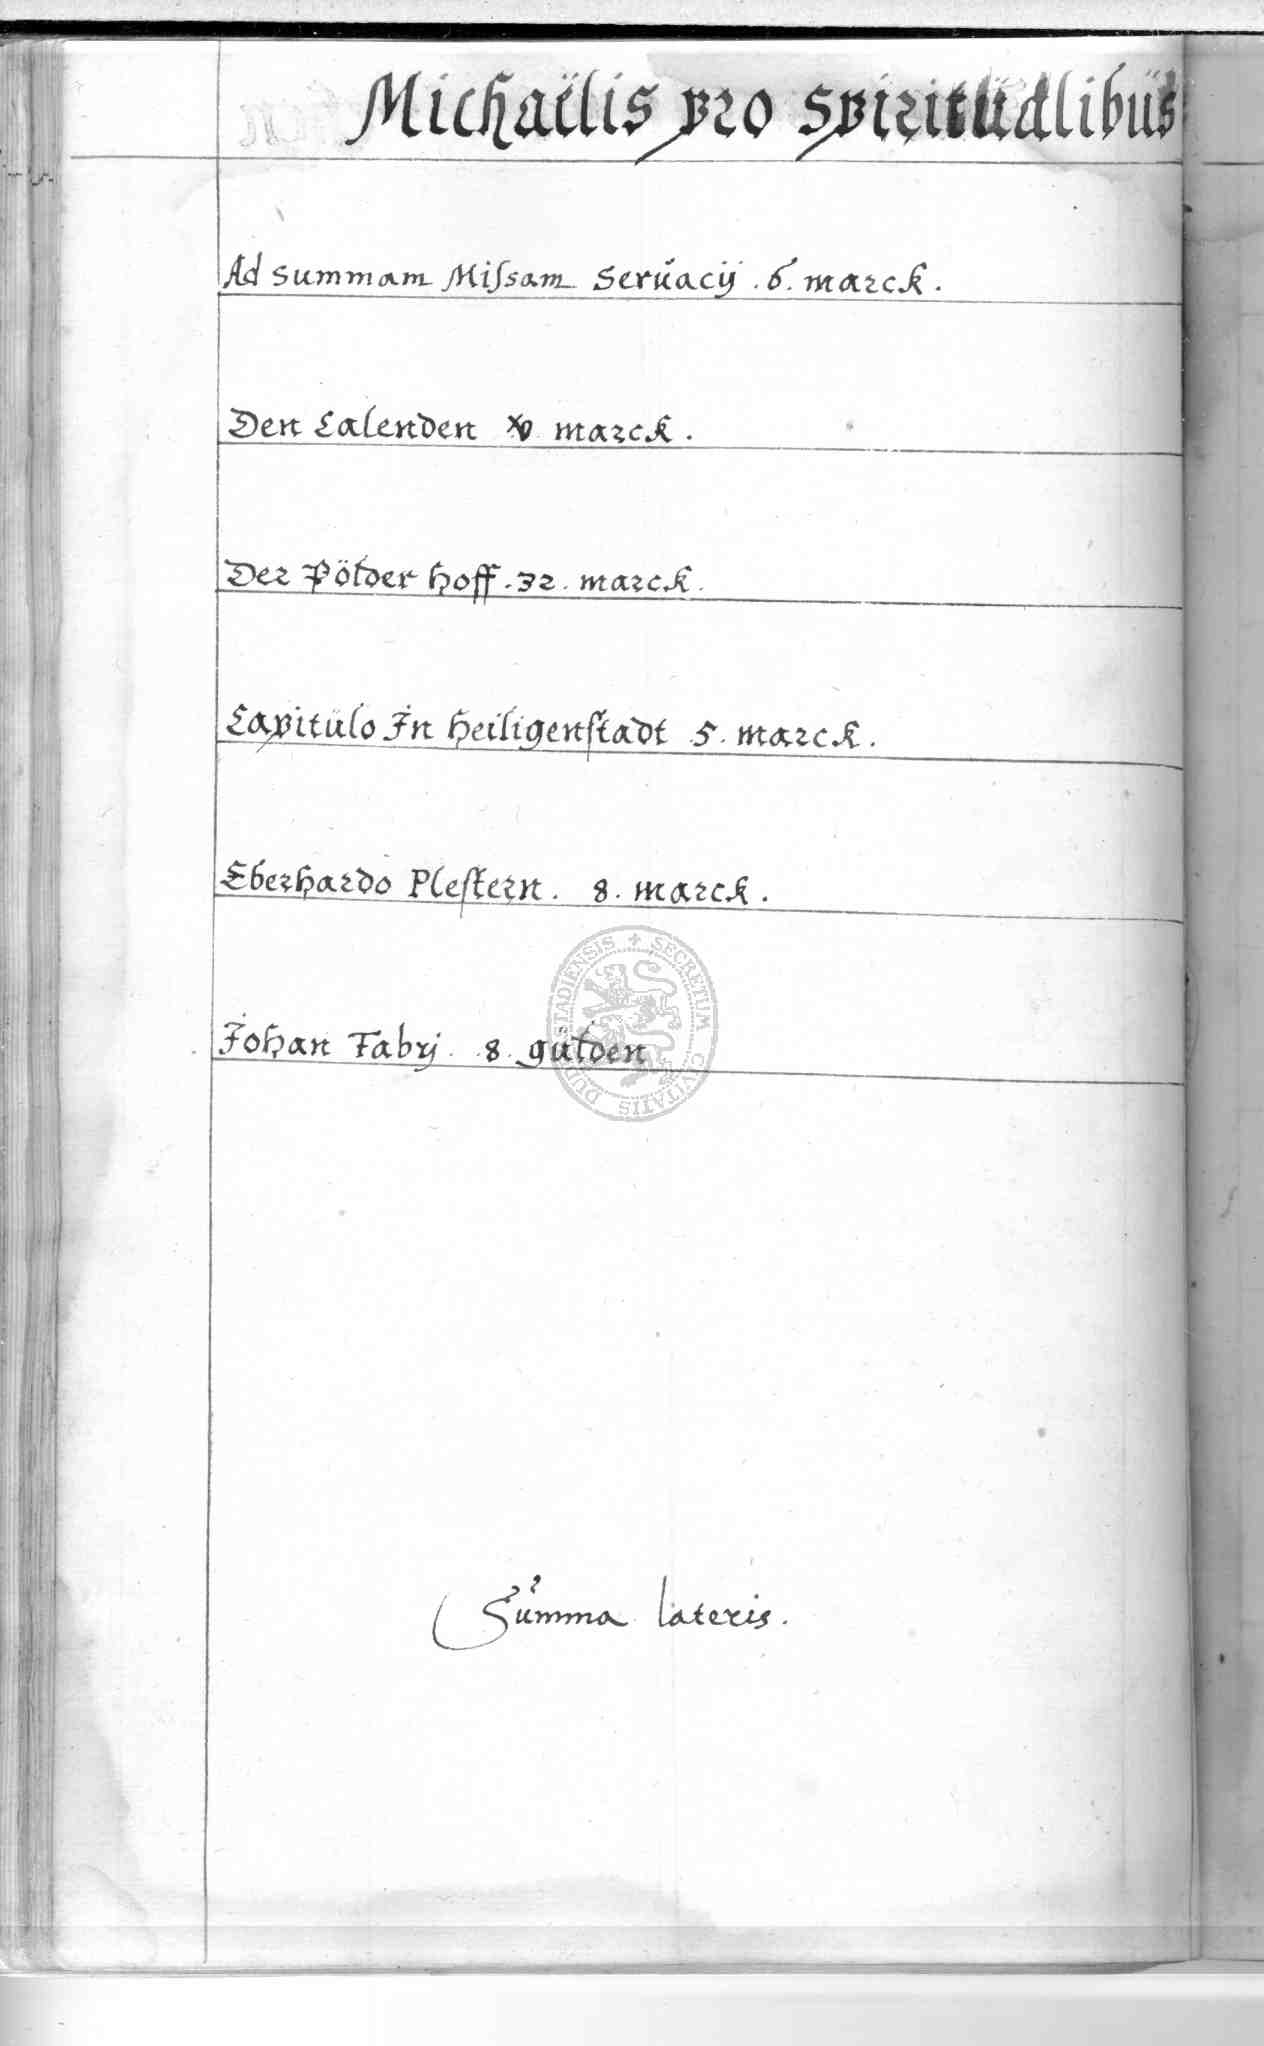 Michaëlis pro spiritüalibüs
Ad summam Missam Serŭacij . 6 . marck .
Den Calenden xv marck .
Der Pölder hoff . 32 . marck .
Capitülo In Heiligenstadt . 5 . marck .
Eberhardo Plestern . 8 . marck .
Johan Fabrj . 8 . gülden
Sũmma lateris .
SECRETUM CIVITATIS DUDERSTADIENSIS